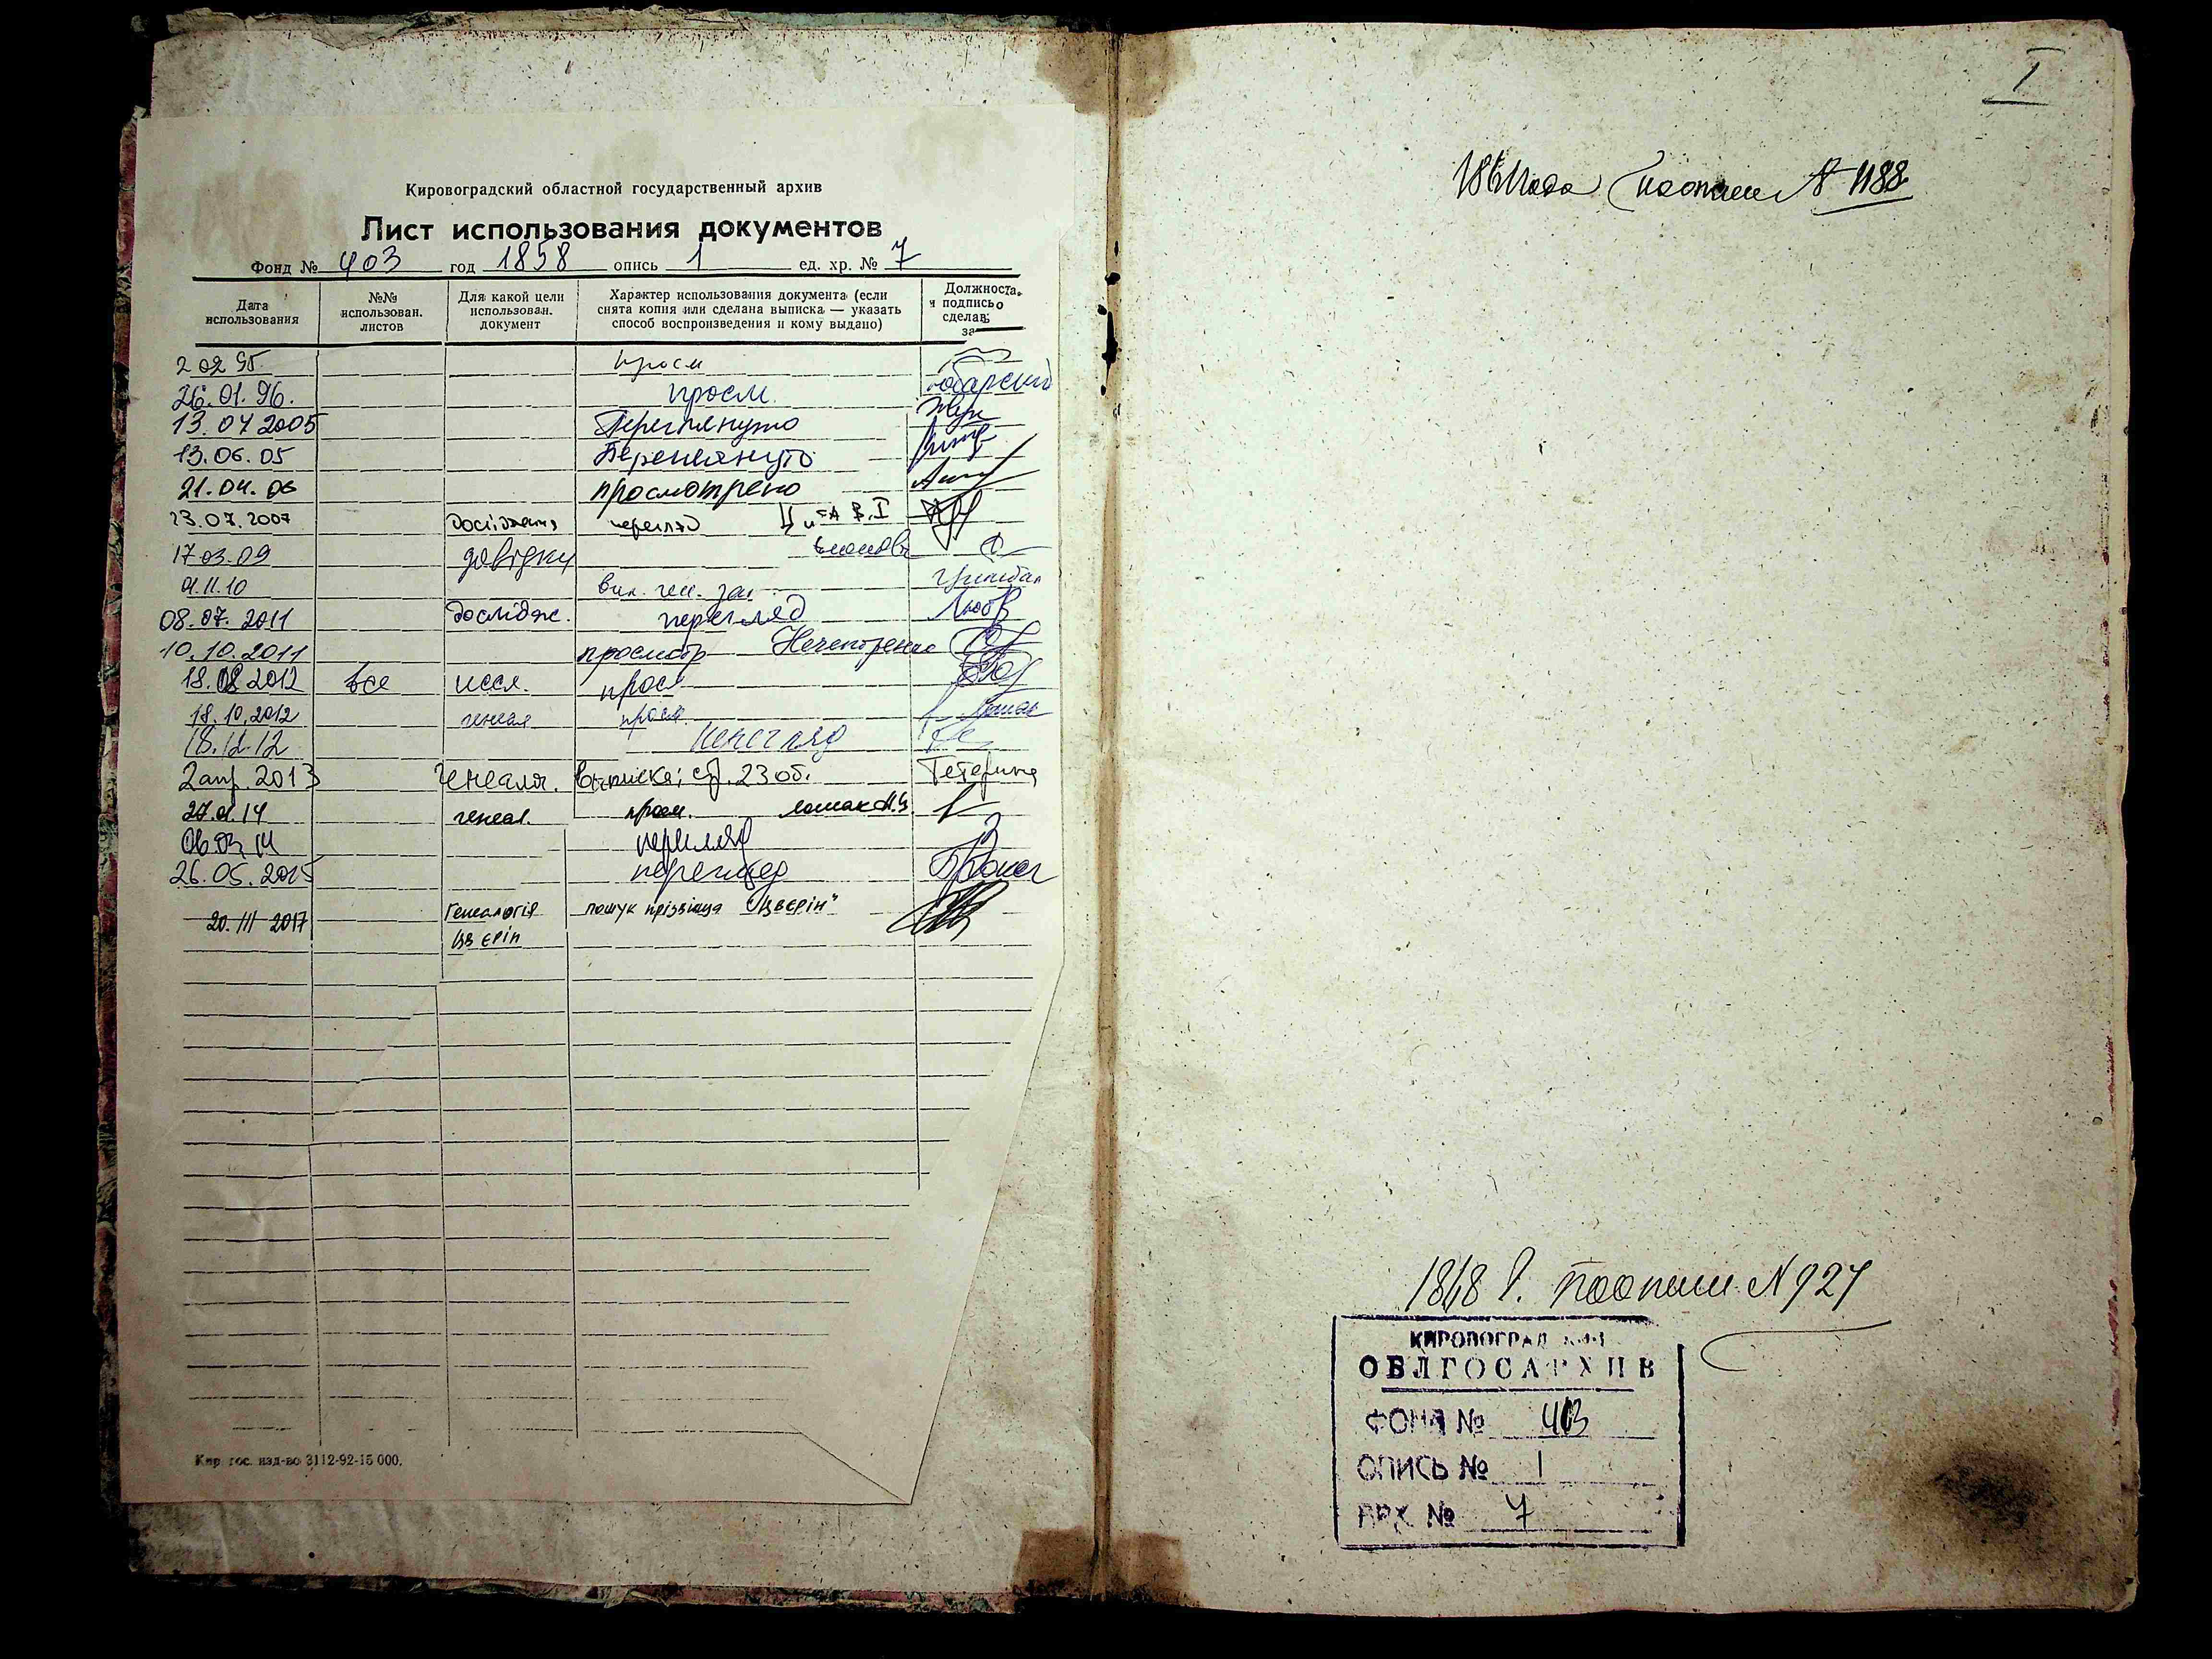 Кировоградский областной государственный архив
Лист использования документов
Фонд № 403 год 1858 опись 1 ед. хр. № 7
Дата использования
№№ использован. листов
Для какой цели использован. документ
Характер использования документа (если снята копия или сделана выписка — указать способ воспроизведения и кому выдано)
Должность и подпись сделав за
2 02 95 просм
26.01.96. просм.
13.04 2005 Переглянуто
13.06.05 Переглянуто
21.04.06 просмотрено
23.07.2007 дослідження перегляд
17 03.09 довідку
01.11.10 вик. ген. зап.
08.07.2011 дослідж. перегляд
10.10.2011 просмотр Нечепоренко
18.08 2012 все иссл. просм
18.10.2012 генеал просм
18.12.12 перегляд
2 апр. 2013 Генеалог. Выписка; стр. 23 об. Тетерина
27.01.14 генеал. просм. Лошак
06 03 14 перегляд
26.05.2015 перегляд
20. III 2017 Генеалогія пошук прізвища "Цвєрін"
Цвєрін
Кир. гос. изд-во 3112-92-15 000.
I
1861 года по описи № 1188
1868 г. по описи N 927
КИРОВОГРАД
ОБЛГОСАРХИВ
ФОНД № 403
ОПИСЬ № 1
ЕД. ХР. № 7